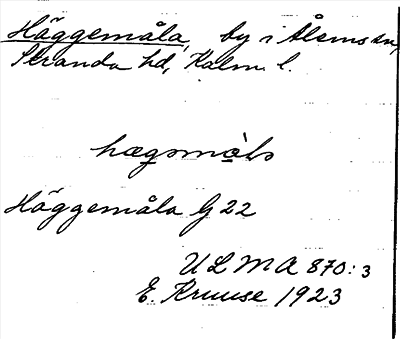 Häggemåla, by i Ålems sn,
Stranda hd, Kalm. l.
hægsmåls
Häggemåla G 22
ULMA 870:3
E. Kruuse 1923